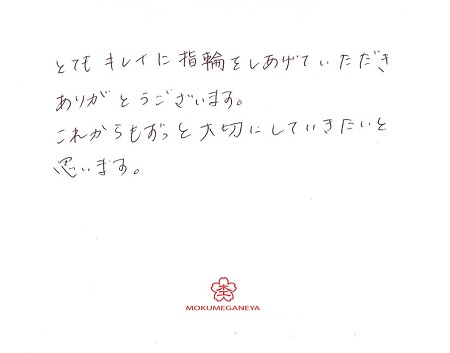 とても キレイに 指輪をしあげていただき
ありがとうございます。
これからもずっと大切にしていきたいと
思います。
MOKUMEGANEYA